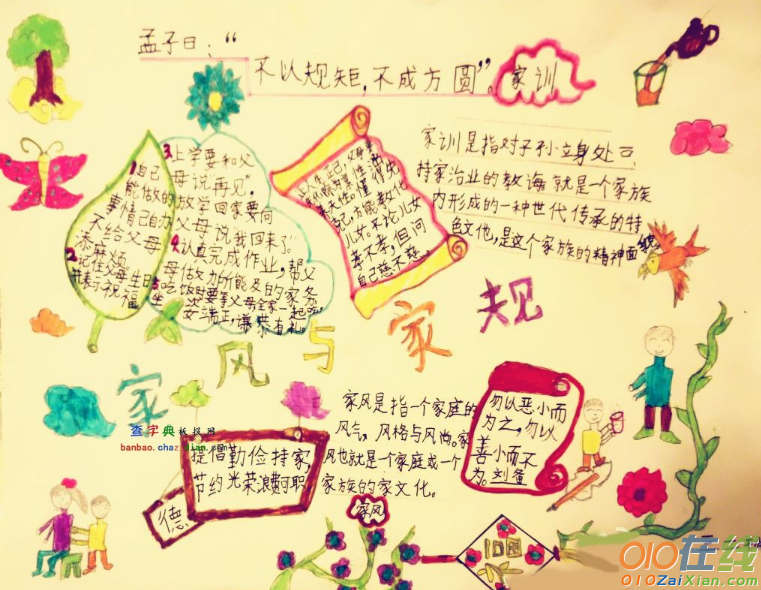 孟子曰：“
不以规矩，不成方圆”。
家训
家训是指对子孙立身处
持家治业的教诲就是一个家族
内形成的一种世代传承的特
色文化，是这个家族的精神面貌
1自己
能做的
事情自己办
不给父母
添麻烦
2.记住父母生日
并表示祝福
3.上学要和父
母说“再见”.
放学回家要向
父母说“我回来了”
4.认真完成作业，帮父
母做力所能及的家务
5.吃饭时要等父母全家一起吃
坐姿端正，谦恭有礼。
自己，方能教化
儿女，不论儿女
孝不孝，但问
自己慈不慈。
家风与家规
家风是指一个家庭的
风气，风格与风尚。家
风也就是一个家庭或一个
家族的家文化。
提倡勤俭持家，
节约光荣浪费可耻
德
勿以恶小而
为之，勿以
善小而不
为。刘备
家风
查字典板报网
banbao.chazidian.com
010在线
010ZaiXian.com